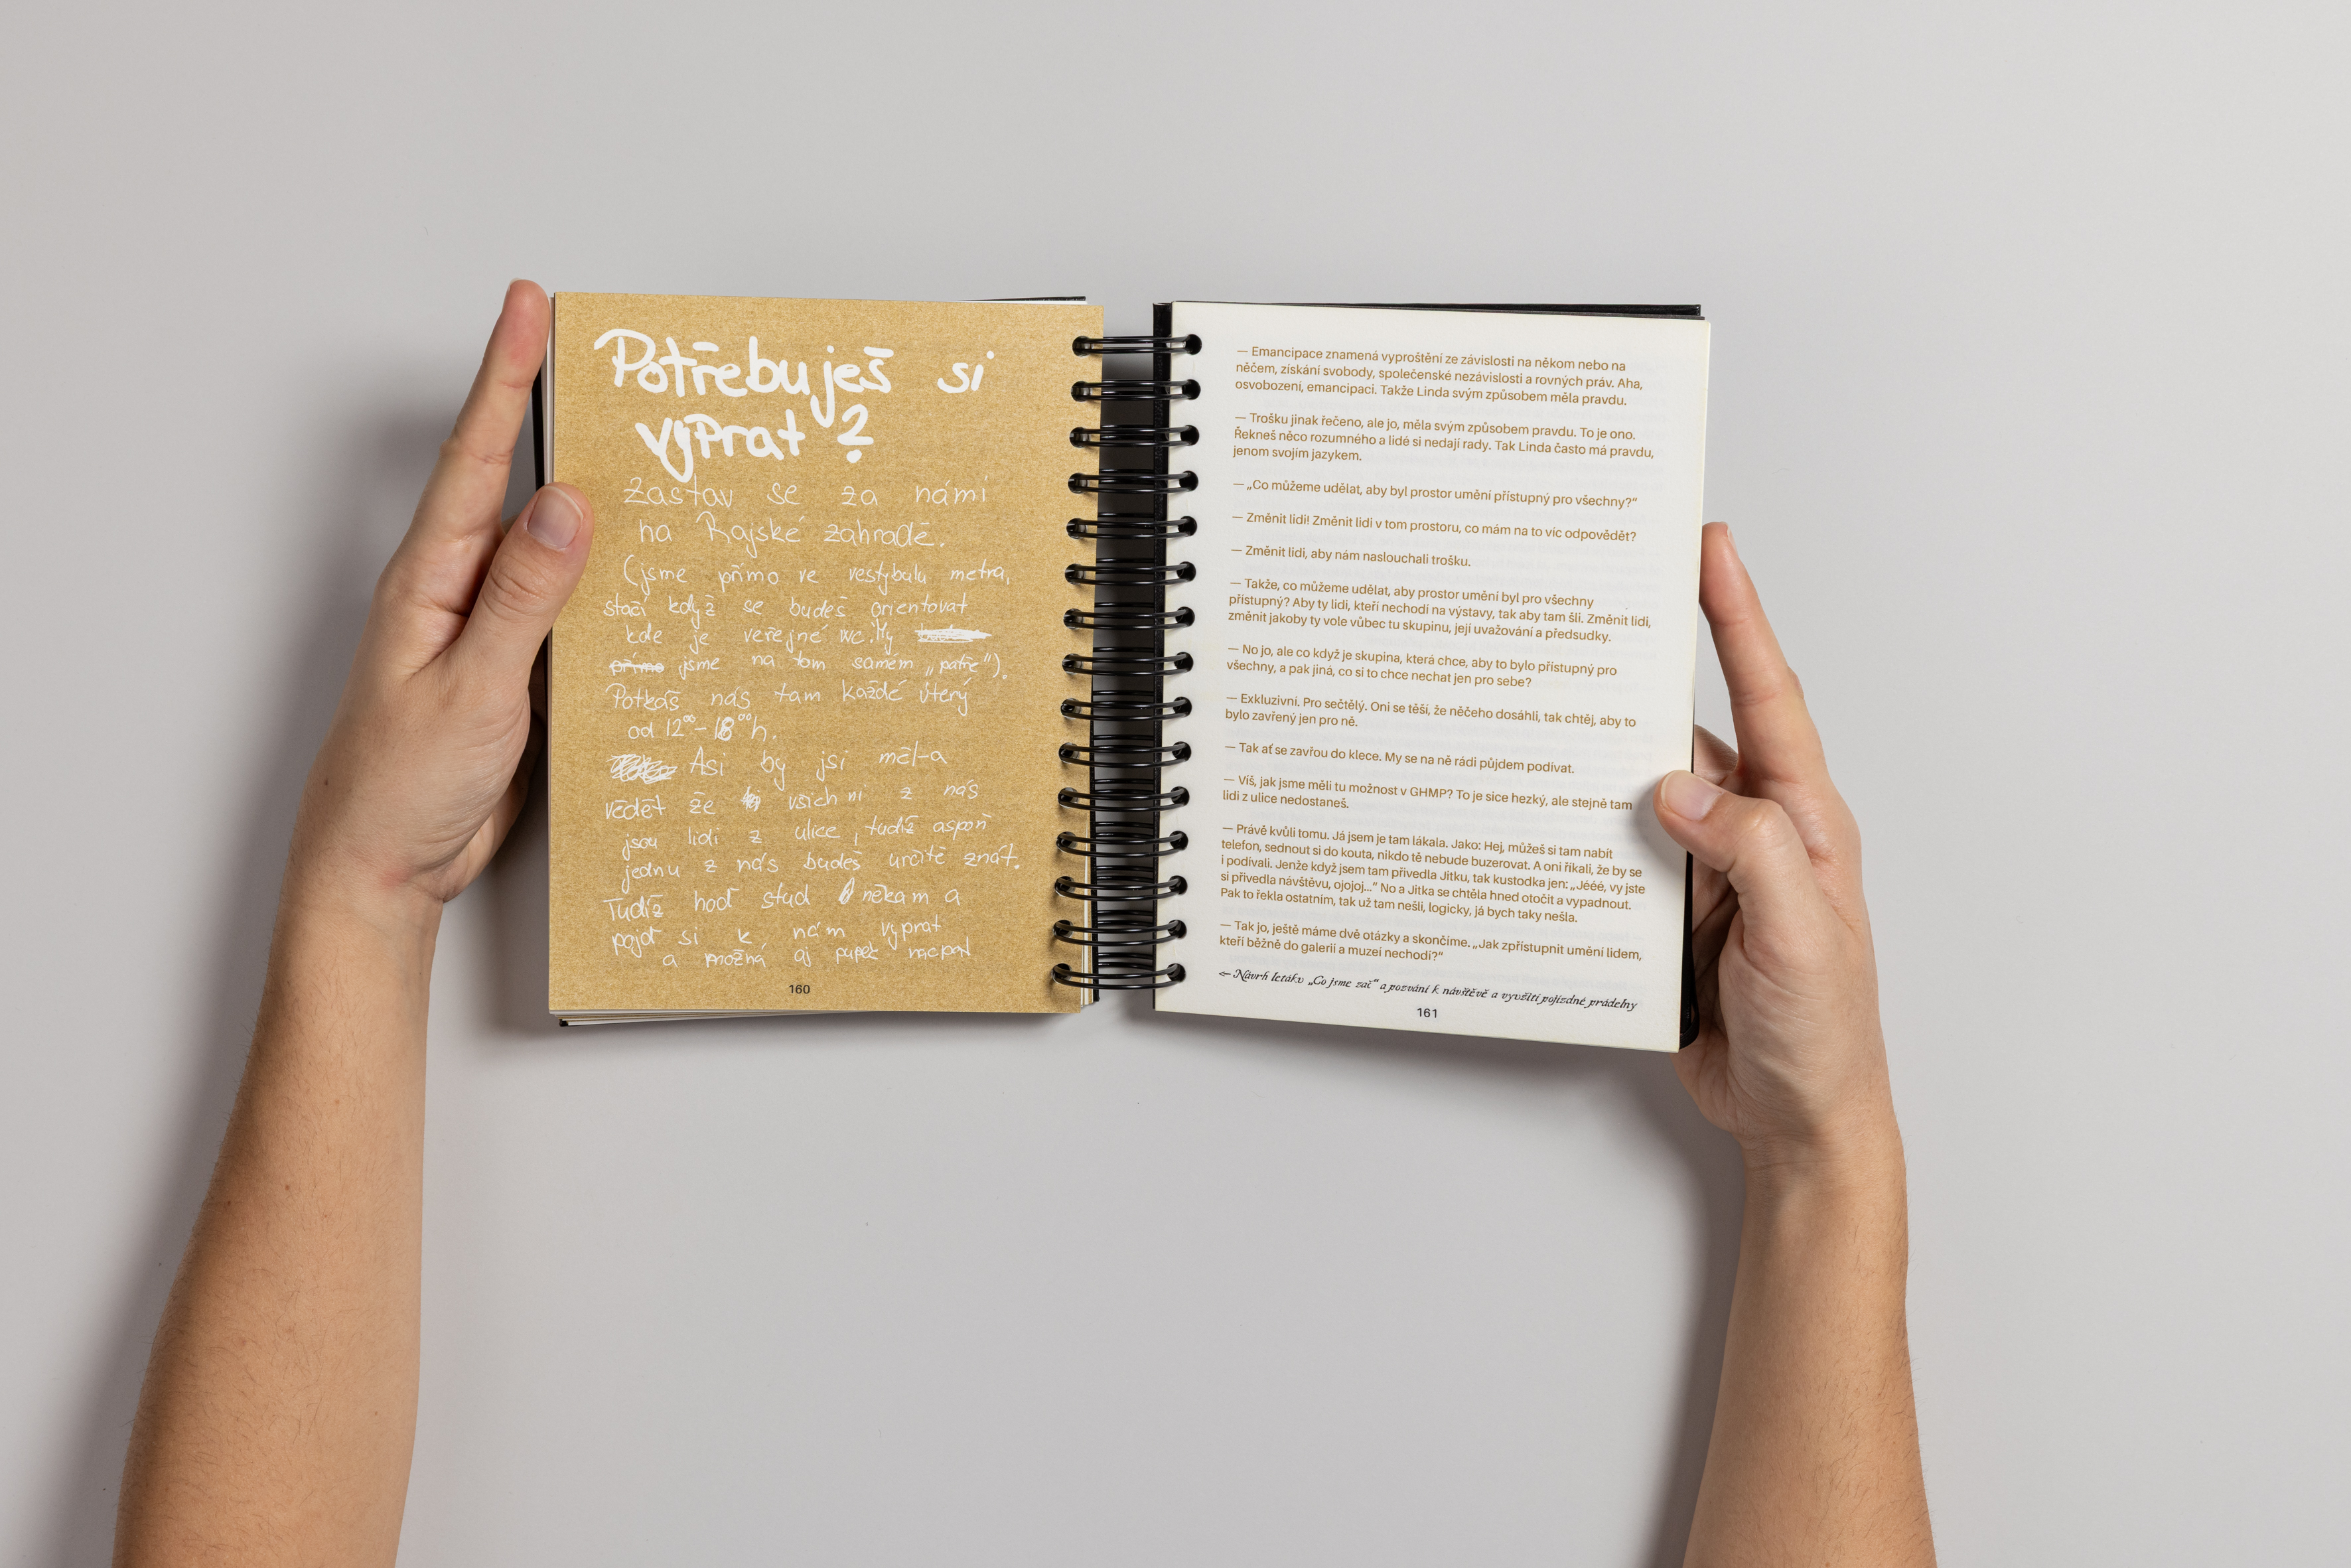 Potřebuješ si
vyprat?
Zastav se za námi
na Rajské zahradě.
(jsme přímo ve vestybulu metra,
stačí když se budeš orientovat
kde je veřejné wc. My
přímo jsme na tom samém „patře“).
Potkáš nás tam každé úterý
od 12⁰⁰–18⁰⁰ h.
Asi by jsi měl-a
vědět že všichni z nás
jsou lidi z ulice, tudíž aspoň
jednu z nás budeš určitě znát.
Tudíž hoď stud někam a
pojď si k nám vyprat
a možná aj pupek nacpat
160
— Emancipace znamená vyproštění ze závislosti na někom nebo na
něčem, získání svobody, společenské nezávislosti a rovných práv. Aha,
osvobození, emancipaci. Takže Linda svým způsobem měla pravdu.
— Trošku jinak řečeno, ale jo, měla svým způsobem pravdu. To je ono.
Řekneš něco rozumného a lidé si nedají rady. Tak Linda často má pravdu,
jenom svojím jazykem.
— „Co můžeme udělat, aby byl prostor umění přístupný pro všechny?“
— Změnit lidi! Změnit lidi v tom prostoru, co mám na to víc odpovědět?
— Změnit lidi, aby nám naslouchali trošku.
— Takže, co můžeme udělat, aby prostor umění byl pro všechny
přístupný? Aby ty lidi, kteří nechodí na výstavy, tak aby tam šli. Změnit lidi,
změnit jakoby ty vole vůbec tu skupinu, její uvažování a předsudky.
— No jo, ale co když je skupina, která chce, aby to bylo přístupný pro
všechny, a pak jiná, co si to chce nechat jen pro sebe?
— Exkluzivní. Pro sečtělý. Oni se těší, že něčeho dosáhli, tak chtěj, aby to
bylo zavřený jen pro ně.
— Tak ať se zavřou do klece. My se na ně rádi půjdem podívat.
— Víš, jak jsme měli tu možnost v GHMP? To je sice hezký, ale stejně tam
lidi z ulice nedostaneš.
— Právě kvůli tomu. Já jsem je tam lákala. Jako: Hej, můžeš si tam nabít
telefon, sednout si do kouta, nikdo tě nebude buzerovat. A oni říkali, že by se
i podívali. Jenže když jsem tam přivedla Jitku, tak kustodka jen: „Jééé, vy jste
si přivedla návštěvu, ojojoj…“ No a Jitka se chtěla hned otočit a vypadnout.
Pak to řekla ostatním, tak už tam nešli, logicky, já bych taky nešla.
— Tak jo, ještě máme dvě otázky a skončíme. „Jak zpřístupnit umění lidem,
kteří běžně do galerií a muzeí nechodí?“
← Návrh letáku „Co jsme zač“ a pozvání k návštěvě a využití pojízdné prádelny
161